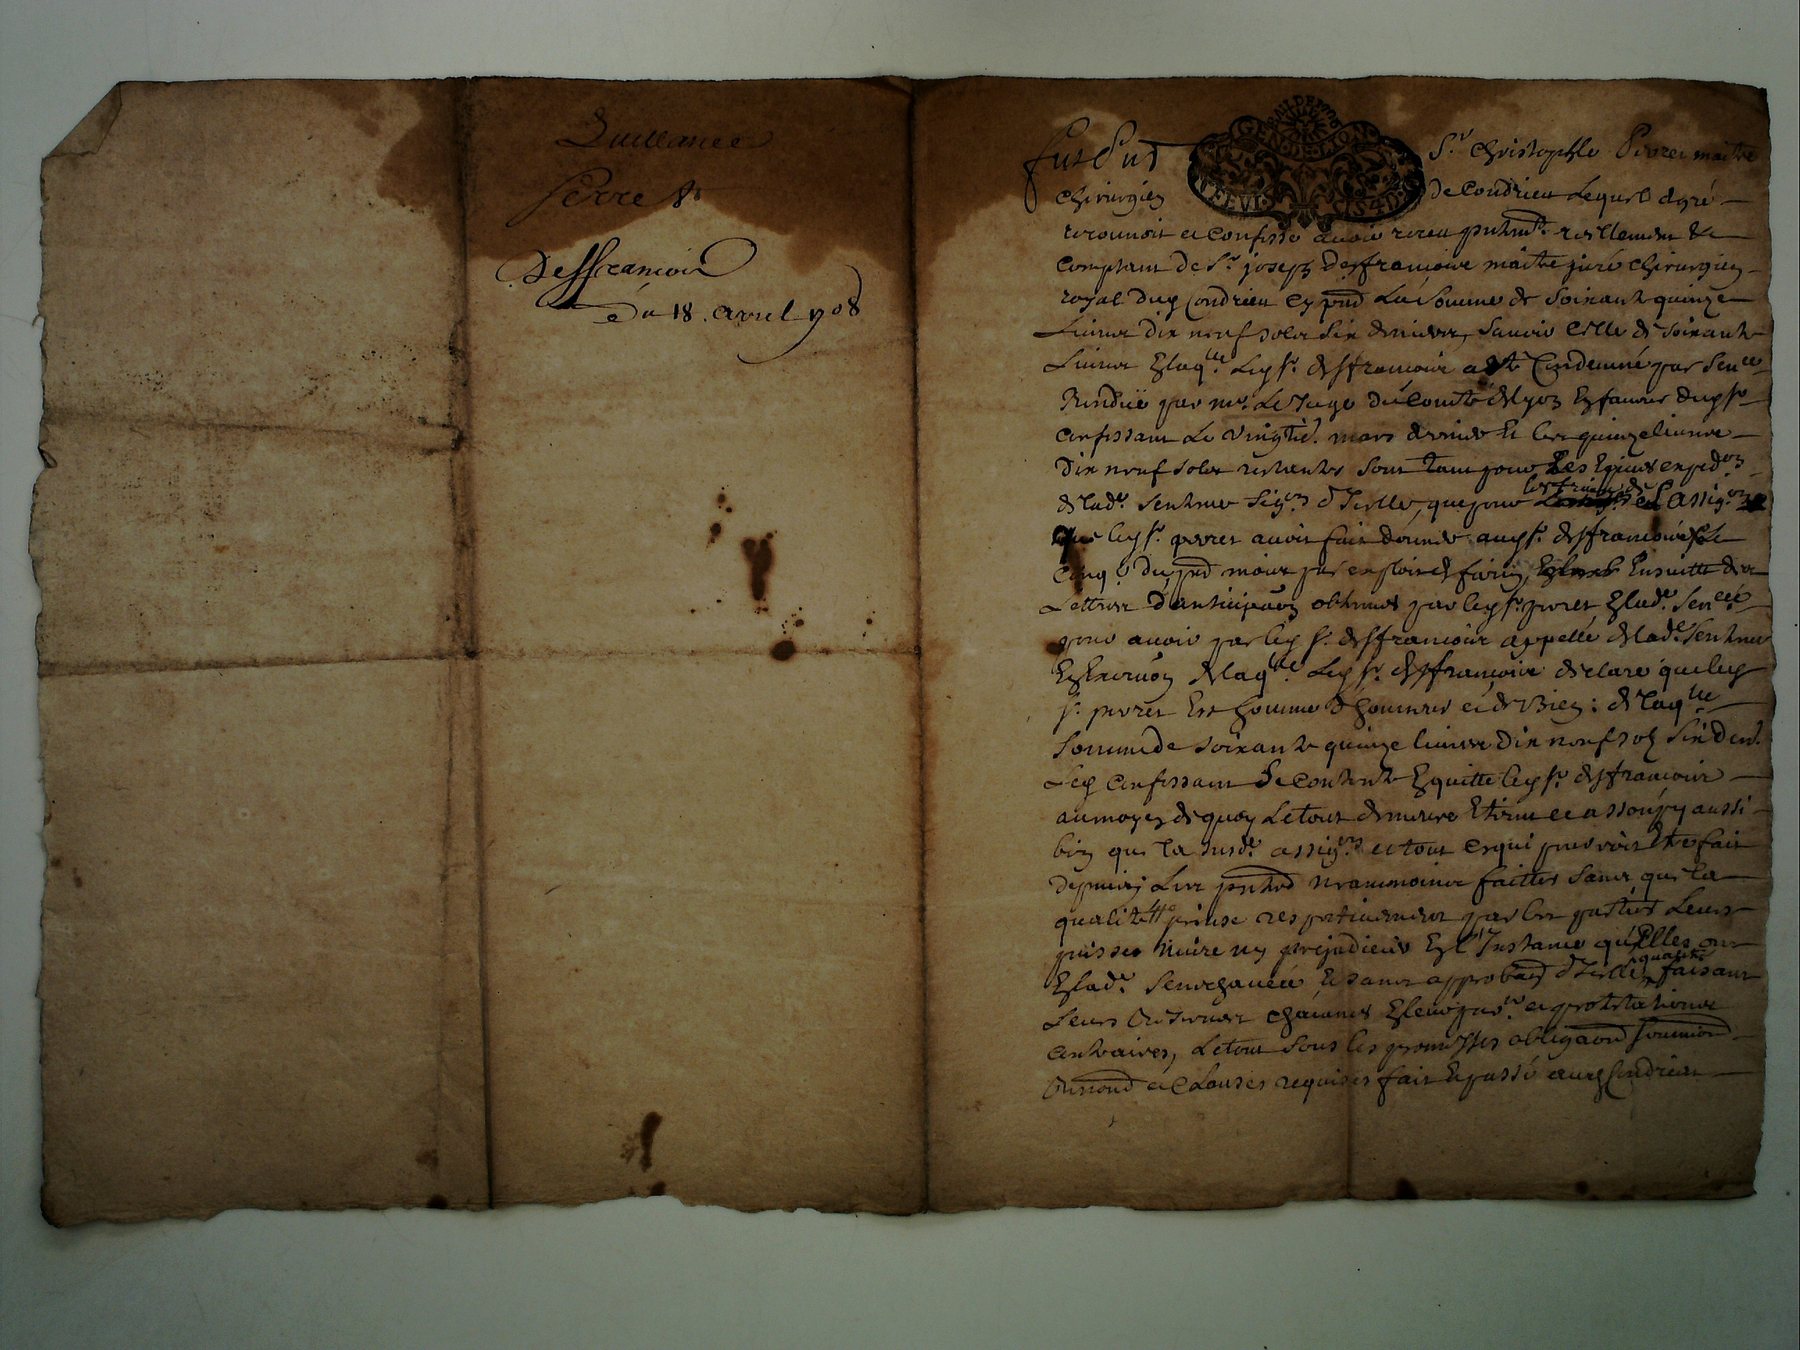 Quittance
Perret
Deffrancoix
Du 18. avril 1708
GENERALITE DE LION
Fut Pnt Sr. Christophle Perret maitre
chirurgien de Condrieu Lequel de gré
reconnoit et confesse avoir receu reellement &
comptant de Sr. joseph Deffrancoix maitre juré chirurgien
royal dud Condrieu La somme de soixante quinze
Livres dix neuf sols six deniers, scavoir celle de soixante
Livres Led Sr. deffrancoix a esté Condemné par Sence
Rendüe par Mr. Le Juge du Comté de Lyon En faveur dud Sr
confessant Le vingtie. mars dernier Et les quinze livres
dix neuf sols restantes sont tant pour Les Epices
de lad. sentence d'icelle, que pour les frais de L'assigon
Que led Sr. perret avoit fait donner aud Sr. deffrancoix Le
cinq. du mois par exploit de Ensuitte des
Lettres d'anticipaon obtenues par led Sr. perret
pour avoir par led Sr. deffrancoix appellé de lad. sentence
de laqlle. Led Sr. deffrancoix declare que led
Sr. perret Est homme d'honneur et de Bien : de laqlle
somme de soixante quinze livres dix neuf sols six den.
Led confessant se contente Et quitte led Sr. deffrancoix
au moyen de quoy Le tout demeure Eteint et assoupy aussi
bien que la susd. assigon. et tout ce qui pouvoit Etre fait
depuis, Les neanmoins faittes sans que la
qualité prinse respectivement par les parties Leurs
puisse nuire ny prejudicier En L'Instance qu'Elles ont
En lad. Senechaucée Et sans approbaon d'icelle qualité, faisant
Leurs chacunes En leur et protestations
contraires, Le tout sous les promesses obligaons soumions
Renons et Clauses requises fait Et passé aud Condrieu